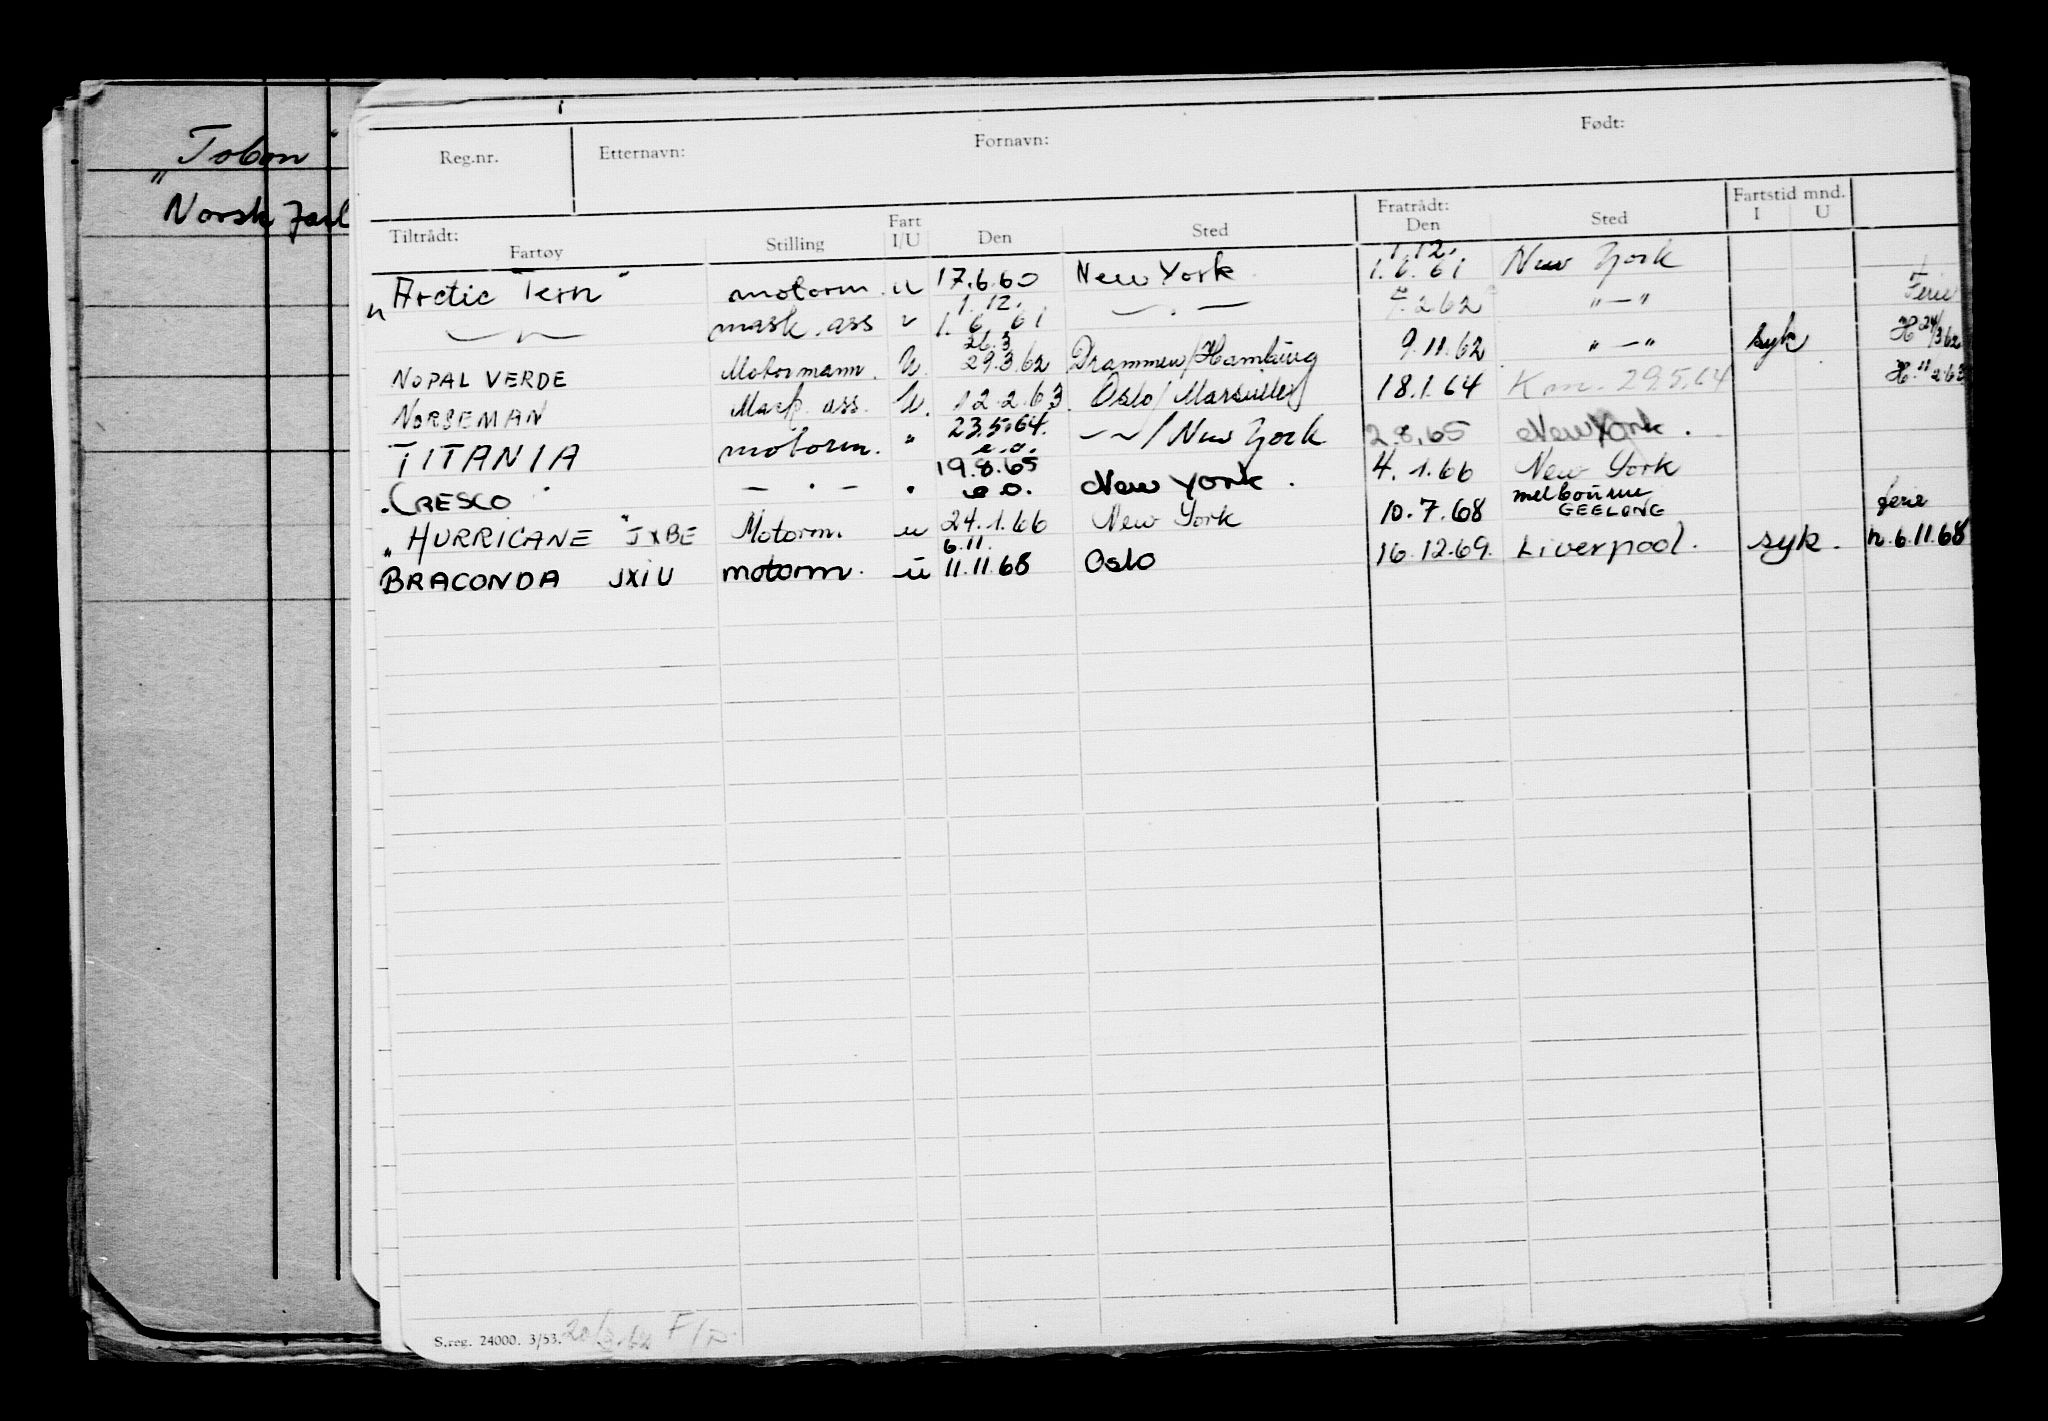 "Tobon"
Norsk Jarl
Reg.nr. Etternavn: Fornavn: Født:
Tiltrådt: Fartøy Stilling Fart I/U Den Sted Fratrådt: Den Sted Fartstid mnd. I U
1.12. 1.12.
"Arctic Tern" motorm. u 17.6.60 New York 1.6.61 New York
—"— mask. ass 1.6.61 — . — 2.62 "—" Ferie
26.3
NOPAL VERDE Motormann. U. 29.3.62 Drammen/Hamburg 9.11.62 "—" syk H 24/3 62
NORSEMAN Mask. ass. U. 12.2.63. Oslo/Marseilles 18.1.64 Km. 29.5.64
TITANIA motorm. " 23.5.64. —"—/New York 2.8.65 New York.
e.o.
CRESCO — " — " 19.8.65 New York. 4.1.66 New York
e.o.
"HURRICANE" JXBE Motorm. u 24.1.66 New York 10.7.68 melbourne GEELONG ferie
6.11.
BRACONDA JXIU motorm. u 11.11.68 Oslo 16.12.69. Liverpool. syk. h.6.11.68
S.reg. 24000. 3/53.